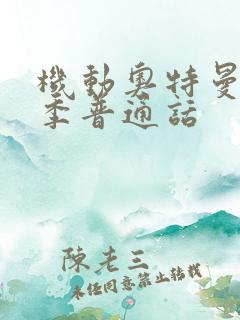 機動奧特曼
季普通話
陳老三
未经同意禁止转载